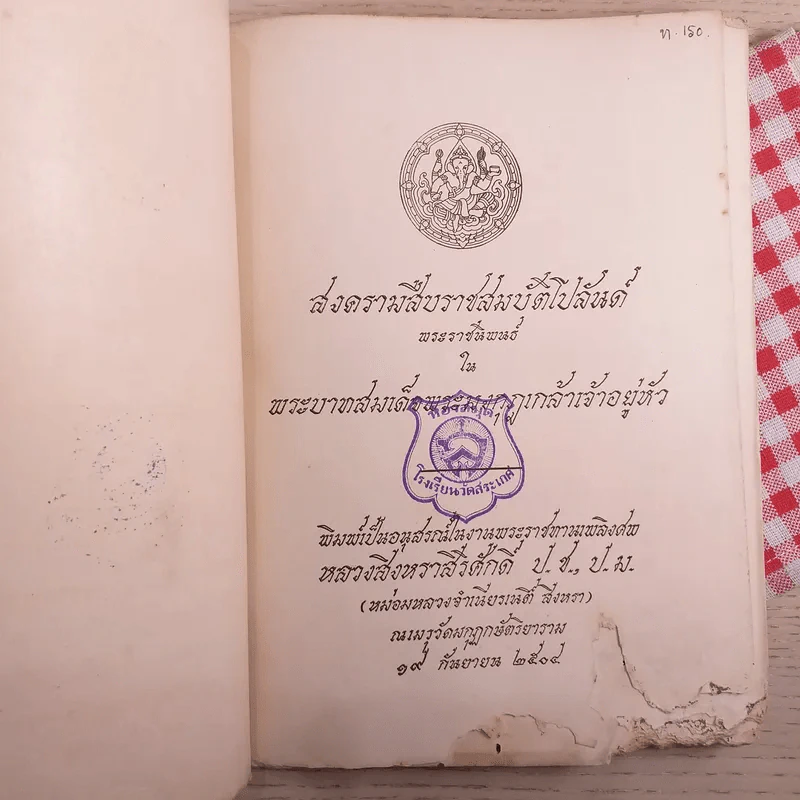 ท.๑๕๐.
สงครามสืบราชสมบัติโปลันด์
พระราชนิพนธ์
ใน
พระบาทสมเด็จพระมงกุฎเกล้าเจ้าอยู่หัว
ห้องสมุด
โรงเรียนวัดสระเกศ
พิมพ์เป็นอนุสรณ์ในงานพระราชทานเพลิงศพ
หลวงสิงหราสิริศักดิ์ ป.ช., ป.ม.
(หม่อมหลวงจำเนียรเนติ์ สิงหรา)
ณเมรุวัดมกุฏกษัตริยาราม
๑๙ กันยายน ๒๕๐๔